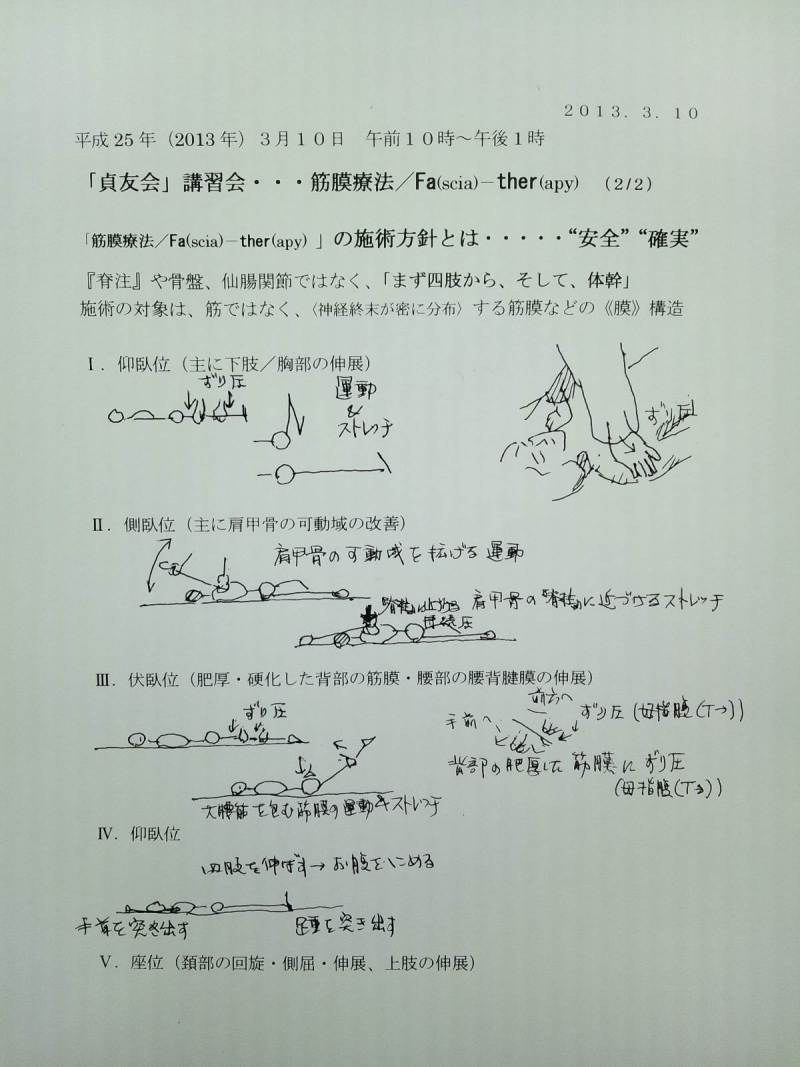 2013. 3. 10
平成25年（2013年）3月10日　午前10時～午後1時
「貞友会」講習会・・・筋膜療法／Fa(scia)－ther(apy)　（2/2）
「筋膜療法／Fa(scia)－ther(apy) 」の施術方針とは・・・・・“安全”“確実”
『脊注』や骨盤、仙腸関節ではなく、「まず四肢から、そして、体幹」
施術の対象は、筋ではなく、〈神経終末が密に分布〉する筋膜などの《膜》構造
Ⅰ．仰臥位（主に下肢／胸部の伸展）
ずり圧
運動
&
ストレッチ
ずり圧
Ⅱ．側臥位（主に肩甲骨の可動域の改善）
肩甲骨の可動域を拡げる運動
肩甲骨の『脊柱』に近づけるストレッチ
Ⅲ．伏臥位（肥厚・硬化した背部の筋膜・腰部の腰背腱膜の伸展）
ずり圧
前方へ
手前へ
ずり圧（母指腹(T→)）
背部の肥厚した筋膜にずり圧
（母指腹(T→)）
大腰筋を包む筋膜の運動&ストレッチ
Ⅳ．仰臥位
四肢を伸ばす→お腹をへこめる
手首を突き出す
足踵を突き出す
Ⅴ．座位（頚部の回旋・側屈・伸展、上肢の伸展）